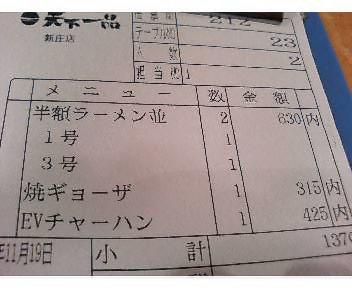 天下一品
新庄店
212
テーブルNO 23
人数 2
担当者 1
メニュー 数 金額
半額(ラーメン並 2 630 内
1号 1
3号 1
焼ギョーザ 1 315 内
EVチャーハン 1 425 内
年11月19日 小計 1370